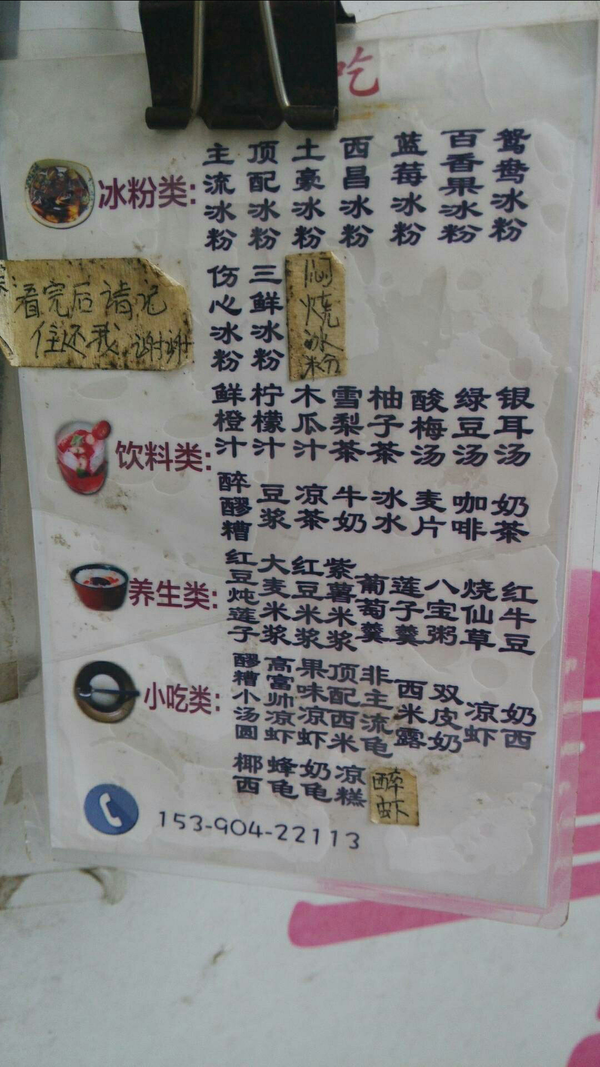 吃
冰粉类:
主流冰粉
顶配冰粉
土豪冰粉
西昌冰粉
蓝莓冰粉
百香果冰粉
鸳鸯冰粉
伤心冰粉
三鲜冰粉
焖烧冰粉
看完后请记
住还我 谢谢
饮料类:
鲜橙汁
柠檬汁
木瓜汁
雪梨茶
柚子茶
酸梅汤
绿豆汤
银耳汤
醉醪糟
豆浆
凉茶
牛奶
冰水
麦片
咖啡
奶茶
养生类:
红豆炖莲子
大麦米浆
红豆米浆
紫薯米浆
葡萄羹
莲子羹
八宝粥
烧仙草
红牛豆
小吃类:
醪糟小汤圆
高富帅凉虾
果味凉虾
顶配西米
非主流龟
西米露
双皮奶
凉虾
奶西
椰西
蜂龟
奶龟
凉糕
醉虾
153-904-22113